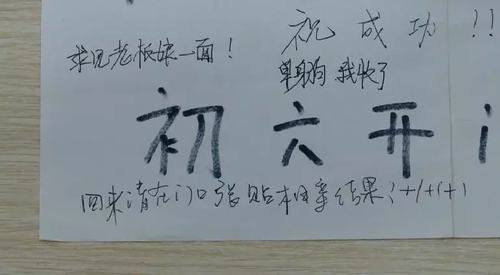 祝成功!!
求见老板娘一面!
单身狗 我收了
初六开
回来请在门口张贴相亲结果!+1+1+1